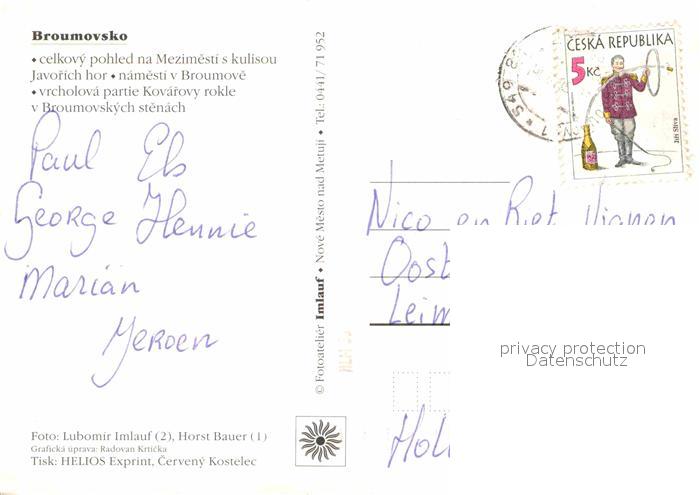 Broumovsko
⬥ celkový pohled na Meziměstí s kulisou
Javořích hor ⬥ náměstí v Broumově
⬥ vrcholová partie Kovářovy rokle
v Broumovských stěnách
Paul Els
George Hennie
Marian
Jeroen
Foto: Lubomír Imlauf (2), Horst Bauer (1)
Grafická úprava: Radovan Krtička
Tisk: HELIOS Exprint, Červený Kostelec
© Fotoateliér Imlauf ⬥ Nové Město nad Metují ⬥ Tel.: 0441/ 71 952
ČESKÁ REPUBLIKA
5 Kč
Jiří Slíva
Nico en Riet
Oost
Leim
Hol
privacy protection
Datenschutz